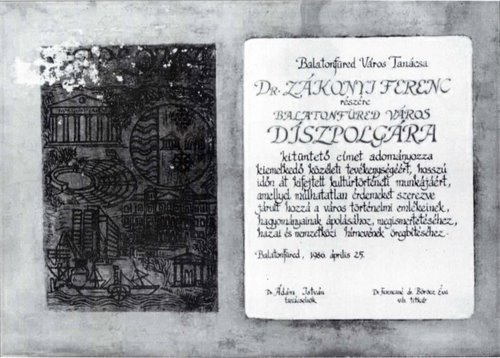 Balatonfüred Város Tanácsa
Dr. ZÁKONYI FERENC
részére
BALATONFÜRED VÁROS
DÍSZPOLGÁRA
kitüntető címet adományozza
kiemelkedő közéleti tevékenységéért, hosszú
időn át kifejtett kultúrtörténeti munkájáért,
amellyel múlhatatlan érdemeket szerezve
járult hozzá a város történelmi emlékeinek,
hagyományainak ápolásához, megismertetéséhez,
hazai és nemzetközi hírnevének öregbítéséhez.
Balatonfüred, 1986. április 25.
Dr. Ádám István
tanácselnök
Dr. Ferencné dr. Bárócz Éva
vb. titkár